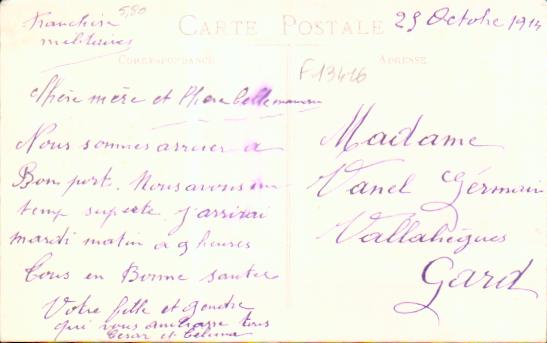 Franchise
militaires
5,80
CARTE POSTALE
25 Octobre 1914
CORRESPONDANCE
ADRESSE
F13416
Chère mère et Chère belle maman
Nous sommes arriver a
Bon port. Nous avons eu
temp superte j'arrivai
mardi matin a 9 heures
Tous en Bonne santer
Votre fille et gendre
qui vous embrasse tous
César et Célina
Madame
Vanel Germain
Vallabègues
Gard